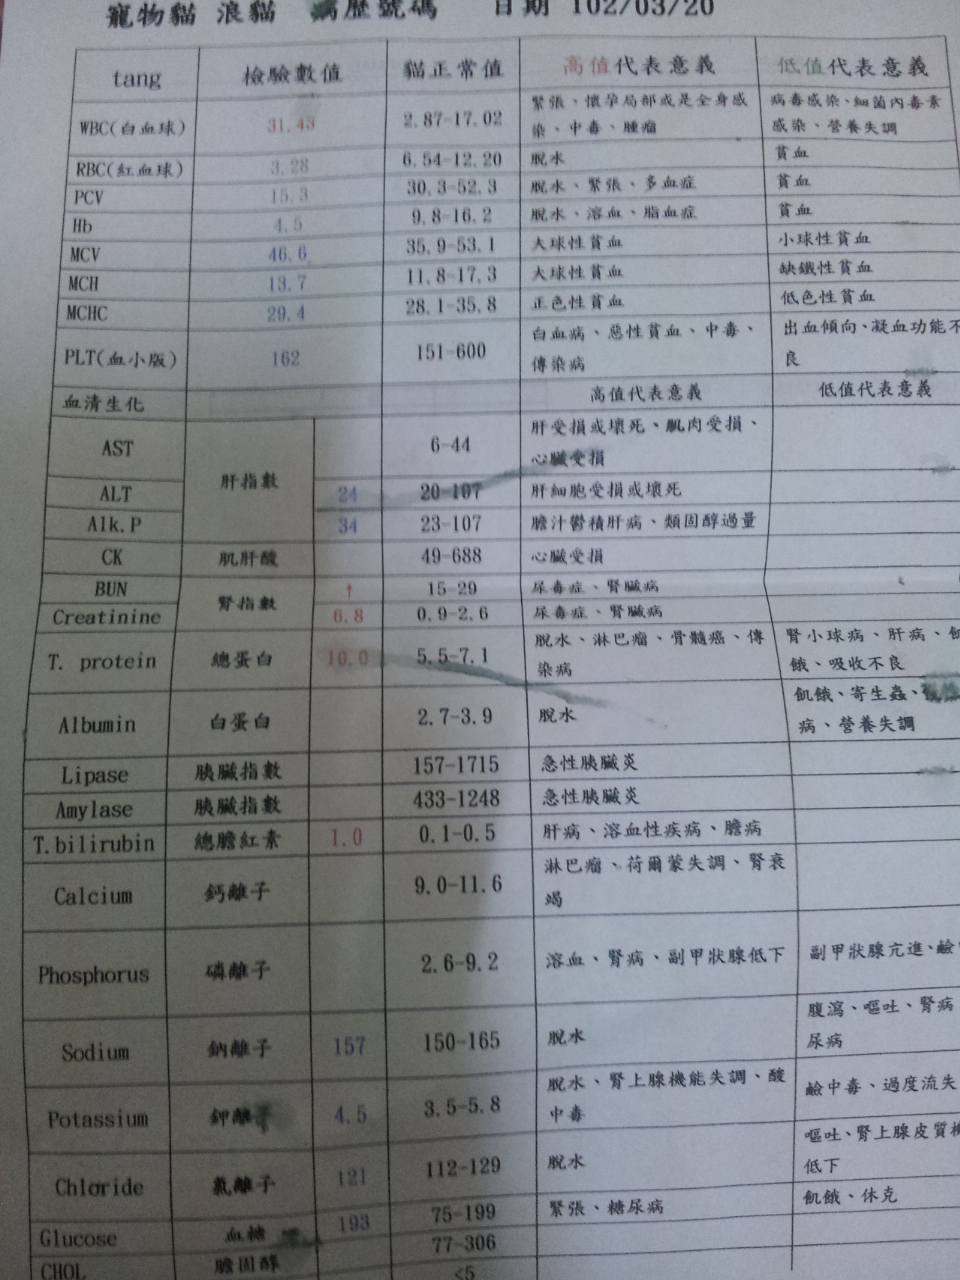 寵物貓 浪貓 病歷號碼 日期 102/03/20
tang 檢驗數值 貓正常值 高值代表意義 低值代表意義
WBC(白血球) 31.43 2.87-17.02 緊張、懷孕局部或是全身感 病毒感染、細菌內毒素
染、中毒、腫瘤 感染、營養失調
RBC(紅血球) 3.28 6.54-12.20 脫水 貧血
PCV 15.3 30.3-52.3 脫水、緊張、多血症 貧血
Hb 4.5 9.8-16.2 脫水、溶血、脂血症 貧血
MCV 46.6 35.9-53.1 大球性貧血 小球性貧血
MCH 13.7 11.8-17.3 大球性貧血 缺鐵性貧血
MCHC 29.4 28.1-35.8 正色性貧血 低色性貧血
PLT(血小版) 162 151-600 白血病、惡性貧血、中毒、 出血傾向、凝血功能不
傳染病 良
血清生化 高值代表意義 低值代表意義
AST 肝指數 6-44 肝受損或壞死、肌肉受損、
心臟受損
ALT 24 20-107 肝細胞受損或壞死
Alk.P 34 23-107 膽汁鬱積肝病、類固醇過量
CK 肌肝酸 49-688 心臟受損
BUN 腎指數 ↑ 15-29 尿毒症、腎臟病
Creatinine 6.8 0.9-2.6 尿毒症、腎臟病
T. protein 總蛋白 10.0 5.5-7.1 脫水、淋巴瘤、骨髓癌、傳 腎小球病、肝病、飢
染病 餓、吸收不良
Albumin 白蛋白 2.7-3.9 脫水 飢餓、寄生蟲、
病、營養失調
Lipase 胰臟指數 157-1715 急性胰臟炎
Amylase 胰臟指數 433-1248 急性胰臟炎
T.bilirubin 總膽紅素 1.0 0.1-0.5 肝病、溶血性疾病、膽病
Calcium 鈣離子 9.0-11.6 淋巴瘤、荷爾蒙失調、腎衰
竭
Phosphorus 磷離子 2.6-9.2 溶血、腎病、副甲狀腺低下 副甲狀腺亢進、鹼
Sodium 鈉離子 157 150-165 脫水 腹瀉、嘔吐、腎病
尿病
Potassium 鉀離子 4.5 3.5-5.8 脫水、腎上腺機能失調、酸 鹼中毒、過度流失
中毒
Chloride 氯離子 121 112-129 脫水 嘔吐、腎上腺皮質機
低下
Glucose 血糖 193 75-199 緊張、糖尿病 飢餓、休克
CHOL 膽固醇 77-306
<5